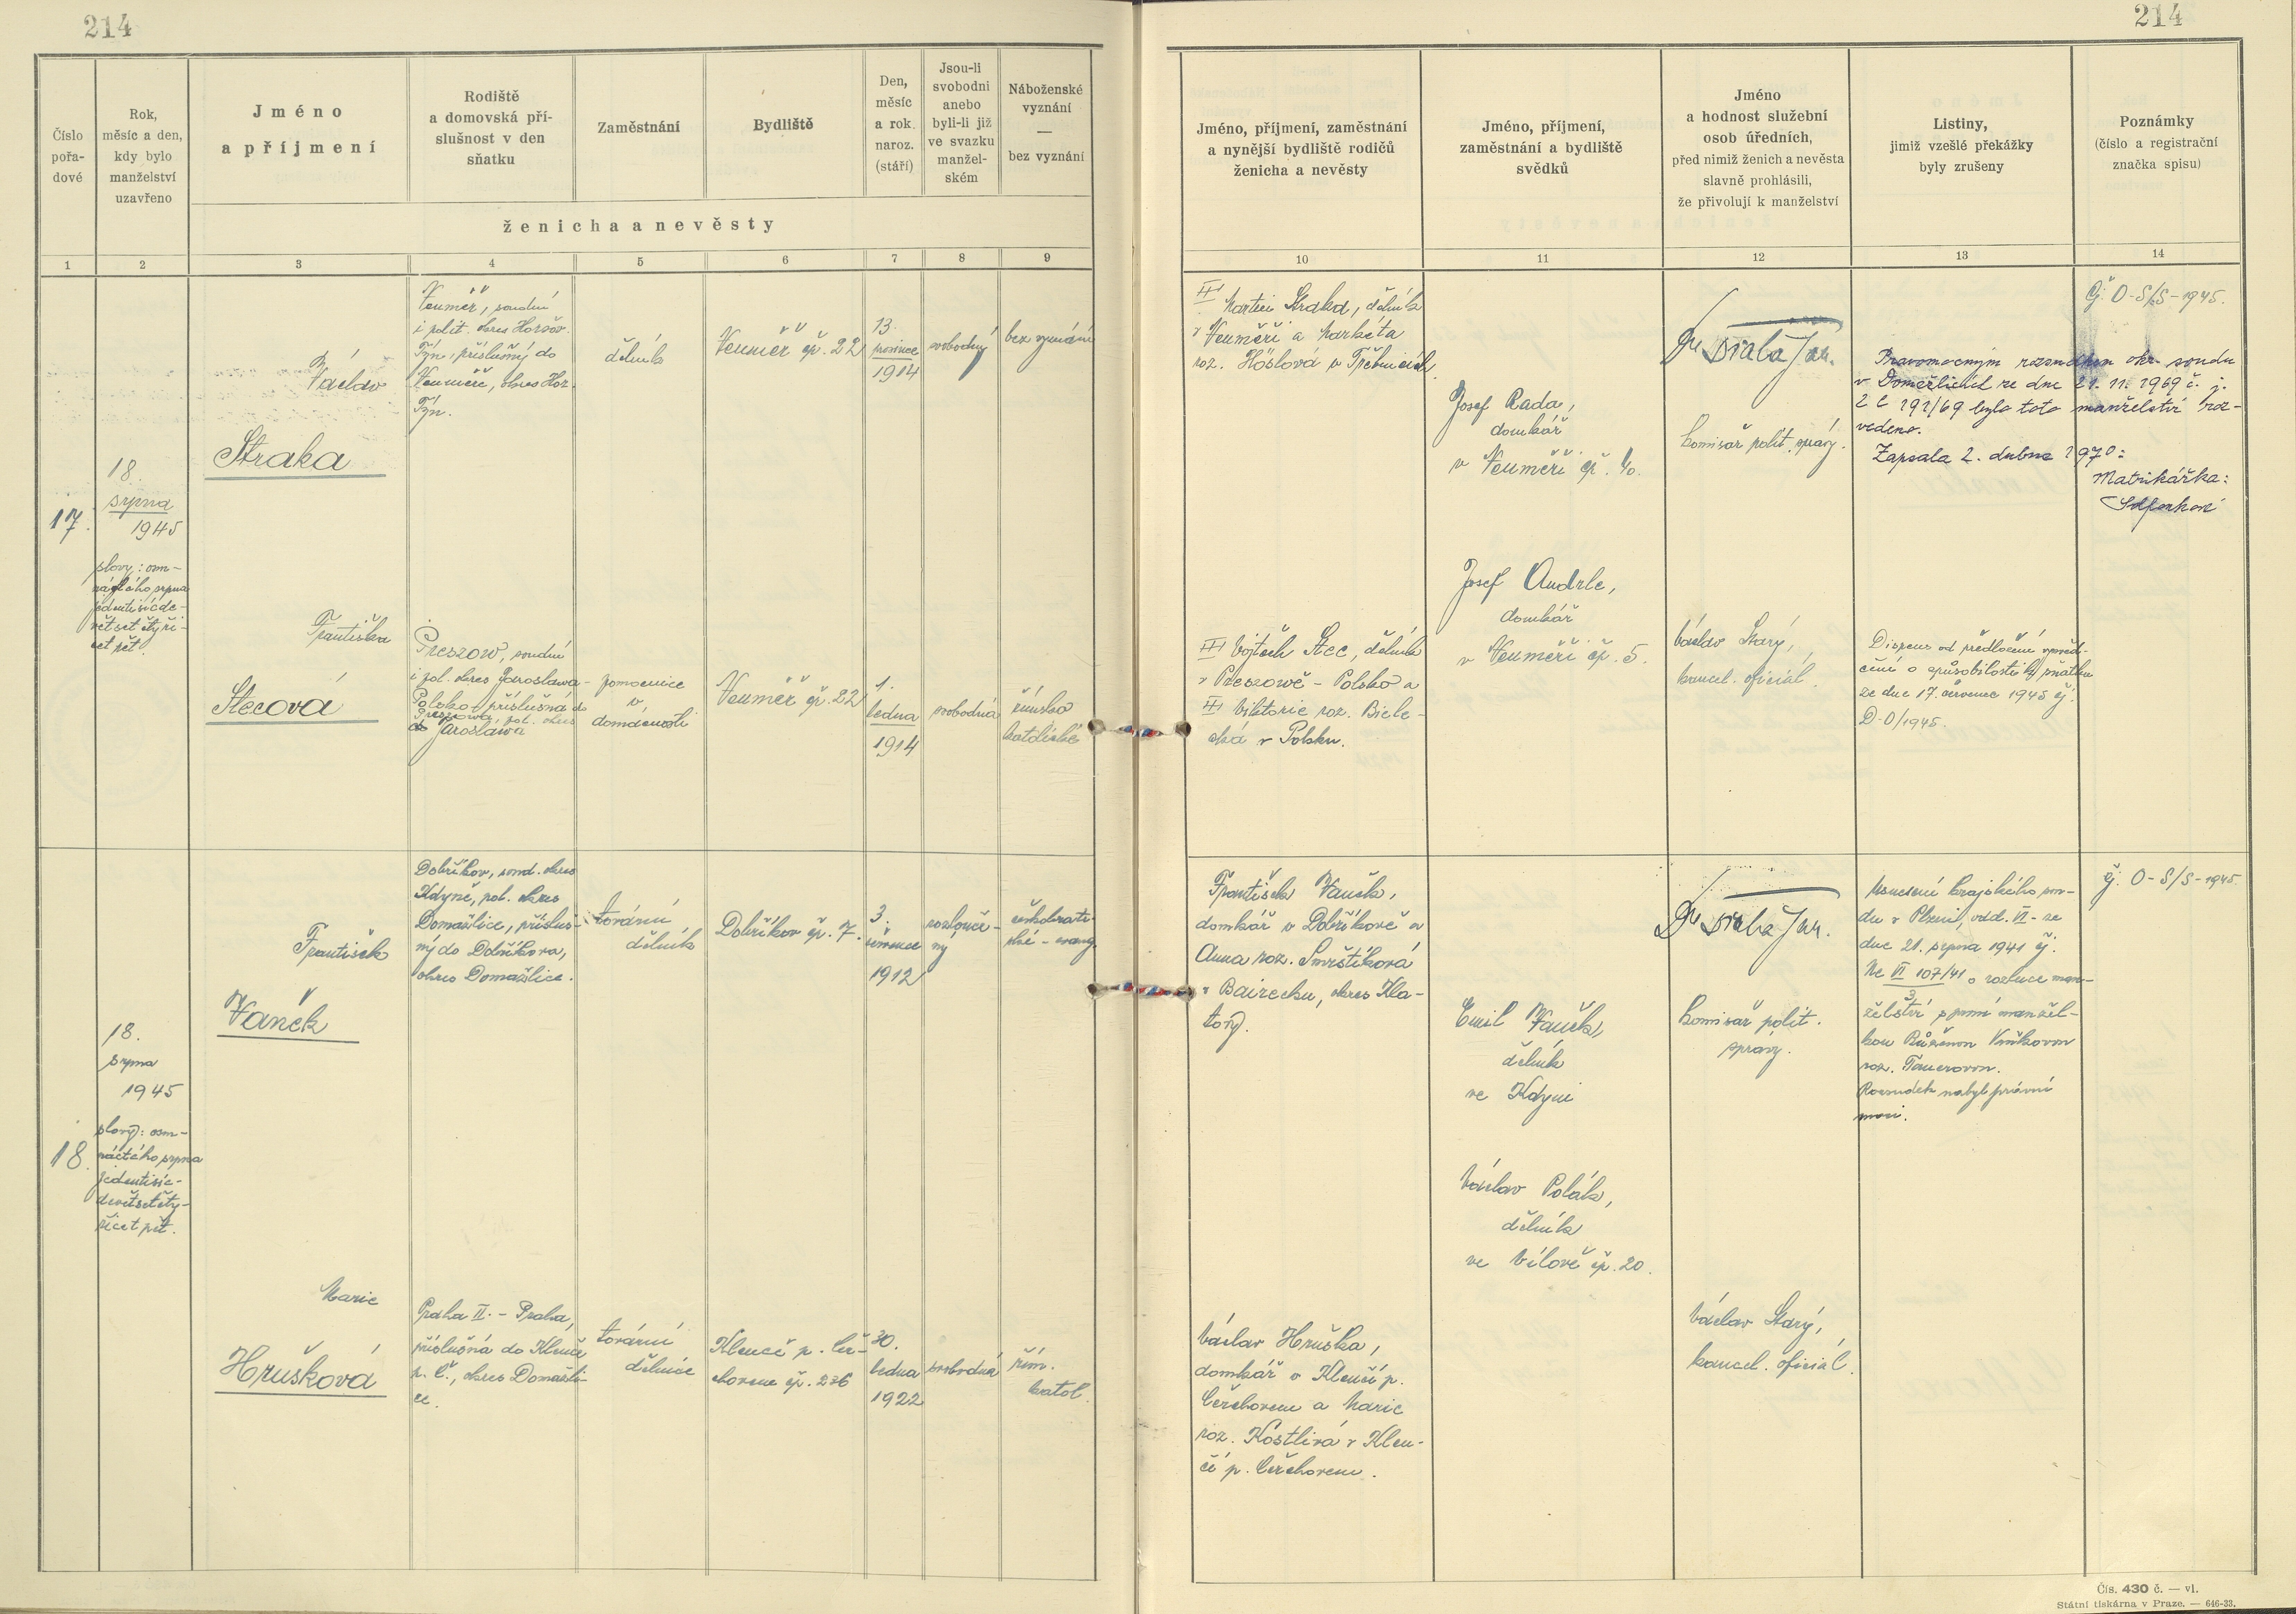 214
214
Číslo
pořa-
dové
Rok,
měsíc a den,
kdy bylo
manželství
uzavřeno
Jméno
a příjmení
Rodiště
a domovská pří-
slušnost v den
sňatku
Zaměstnání
Bydliště
Den,
měsíc
a rok
naroz.
(stáří)
Jsou-li
svobodni
anebo
byli-li již
ve svazku
manžel-
ském
Náboženské
vyznání
—
bez vyznání
ženicha a nevěsty
Jméno, příjmení, zaměstnání
a nynější bydliště rodičů
ženicha a nevěsty
Jméno, příjmení,
zaměstnání a bydliště
svědků
Jméno
a hodnost služební
osob úředních,
před nimiž ženich a nevěsta
slavně prohlásili,
že přivolují k manželství
Listiny,
jimiž vzešlé překážky
byly zrušeny
Poznámky
(číslo a registrační
značka spisu)
1
2
3
4
5
6
7
8
9
10
11
12
13
14
17.
18.
srpna
1945
slovy: osm-
náctého srpna
jedentisícde-
větsetčtyři-
cet pět.
Václav
Straka
Neuměř, soudní
i polit. okres Horšov.
Týn, příslušný do
Neuměře, okres Hor.
Týn.
dělník
Neuměř čp. 22
13.
prosince
1914
svobodný
bez vyznání
Františka
Stecová
Preszow, soudní
i pol. okres Jaroslawa-
Polsko, příslušná do
Preszowa, pol. okres
Jaroslawa
pomocnice
v
domácnosti
Neuměř čp. 22
1.
ledna
1914
svobodná
římsko
katolické
Martin Straka, dělník
v Neuměři a Markéta
roz. Höslová v Třebnicích.
Vojtěch Stec, dělník
v Preszowě - Polsko a
Viktorie roz. Biele-
cká v Polsku.
Josef Rada,
domkář
v Neuměři čp. 40.
Josef Andrle,
domkář
v Neuměři čp. 5.
komisař polit. správy.
Václav Starý,
kancel. oficiál.
Pravomocným rozsudkem okr. soudu
v Domažlicích ze dne 21. 11. 1969 č. j.
2 C 191/69 bylo toto manželství roz-
vedeno.
Zapsala 2. dubna 1970:
Matrikářka:
Dispens od předložení vysvěd-
čení o způsobilosti ke sňatku
ze dne 17. července 1945 čj.
D-O/1945.
Čj. O-S/S-1945.
18.
18.
srpna
1945
slovy: osm-
náctého srpna
jedentisíc-
devětsetčty-
řicet pět.
František
Vaněk
Dobříkov, soud. okres
Kdyně, pol. okres
Domažlice, přísluš-
ný do Dobříkova,
okres Domažlice.
tovární
dělník
Dobříkov čp. 7.
3.
července
1912
rozlouče-
ný
českobratr-
ské-evang.
Marie
Hrušková
Praha II. - Praha,
příslušná do Klenčí
p. Č., okres Domažli-
ce.
tovární
dělnice
Klenčí p. Čer-
chovem čp. 236
30.
ledna
1922
svobodná
řím.
katol.
František Vaněk,
domkář v Dobříkově a
Anna roz. Smrštíková
okres Kla-
tovy.
Václav Hruška,
domkář v Klenčí p.
Čerchovem a Marie
roz. Kostlivá v Klen-
čí p. Čerchovem.
Emil Vaněk,
dělník
ve Kdyni
Václav Polák,
dělník
ve Vílově čp. 20.
komisař polit.
správy.
Václav Starý,
kancel. oficiál.
Usnesení krajského sou-
du v Plzni, odd. VI- ze
dne 21. srpna 1941 čj.
107/41 o rozluce man-
želství s první manžel-
kou Růženou Vaňkovou
roz. Tauerovou.
Rozsudek nabyl právní
moci.
Čj. O-S/S-1945
Čís. 430 č. — vl.
Státní tiskárna v Praze. — 646-33.